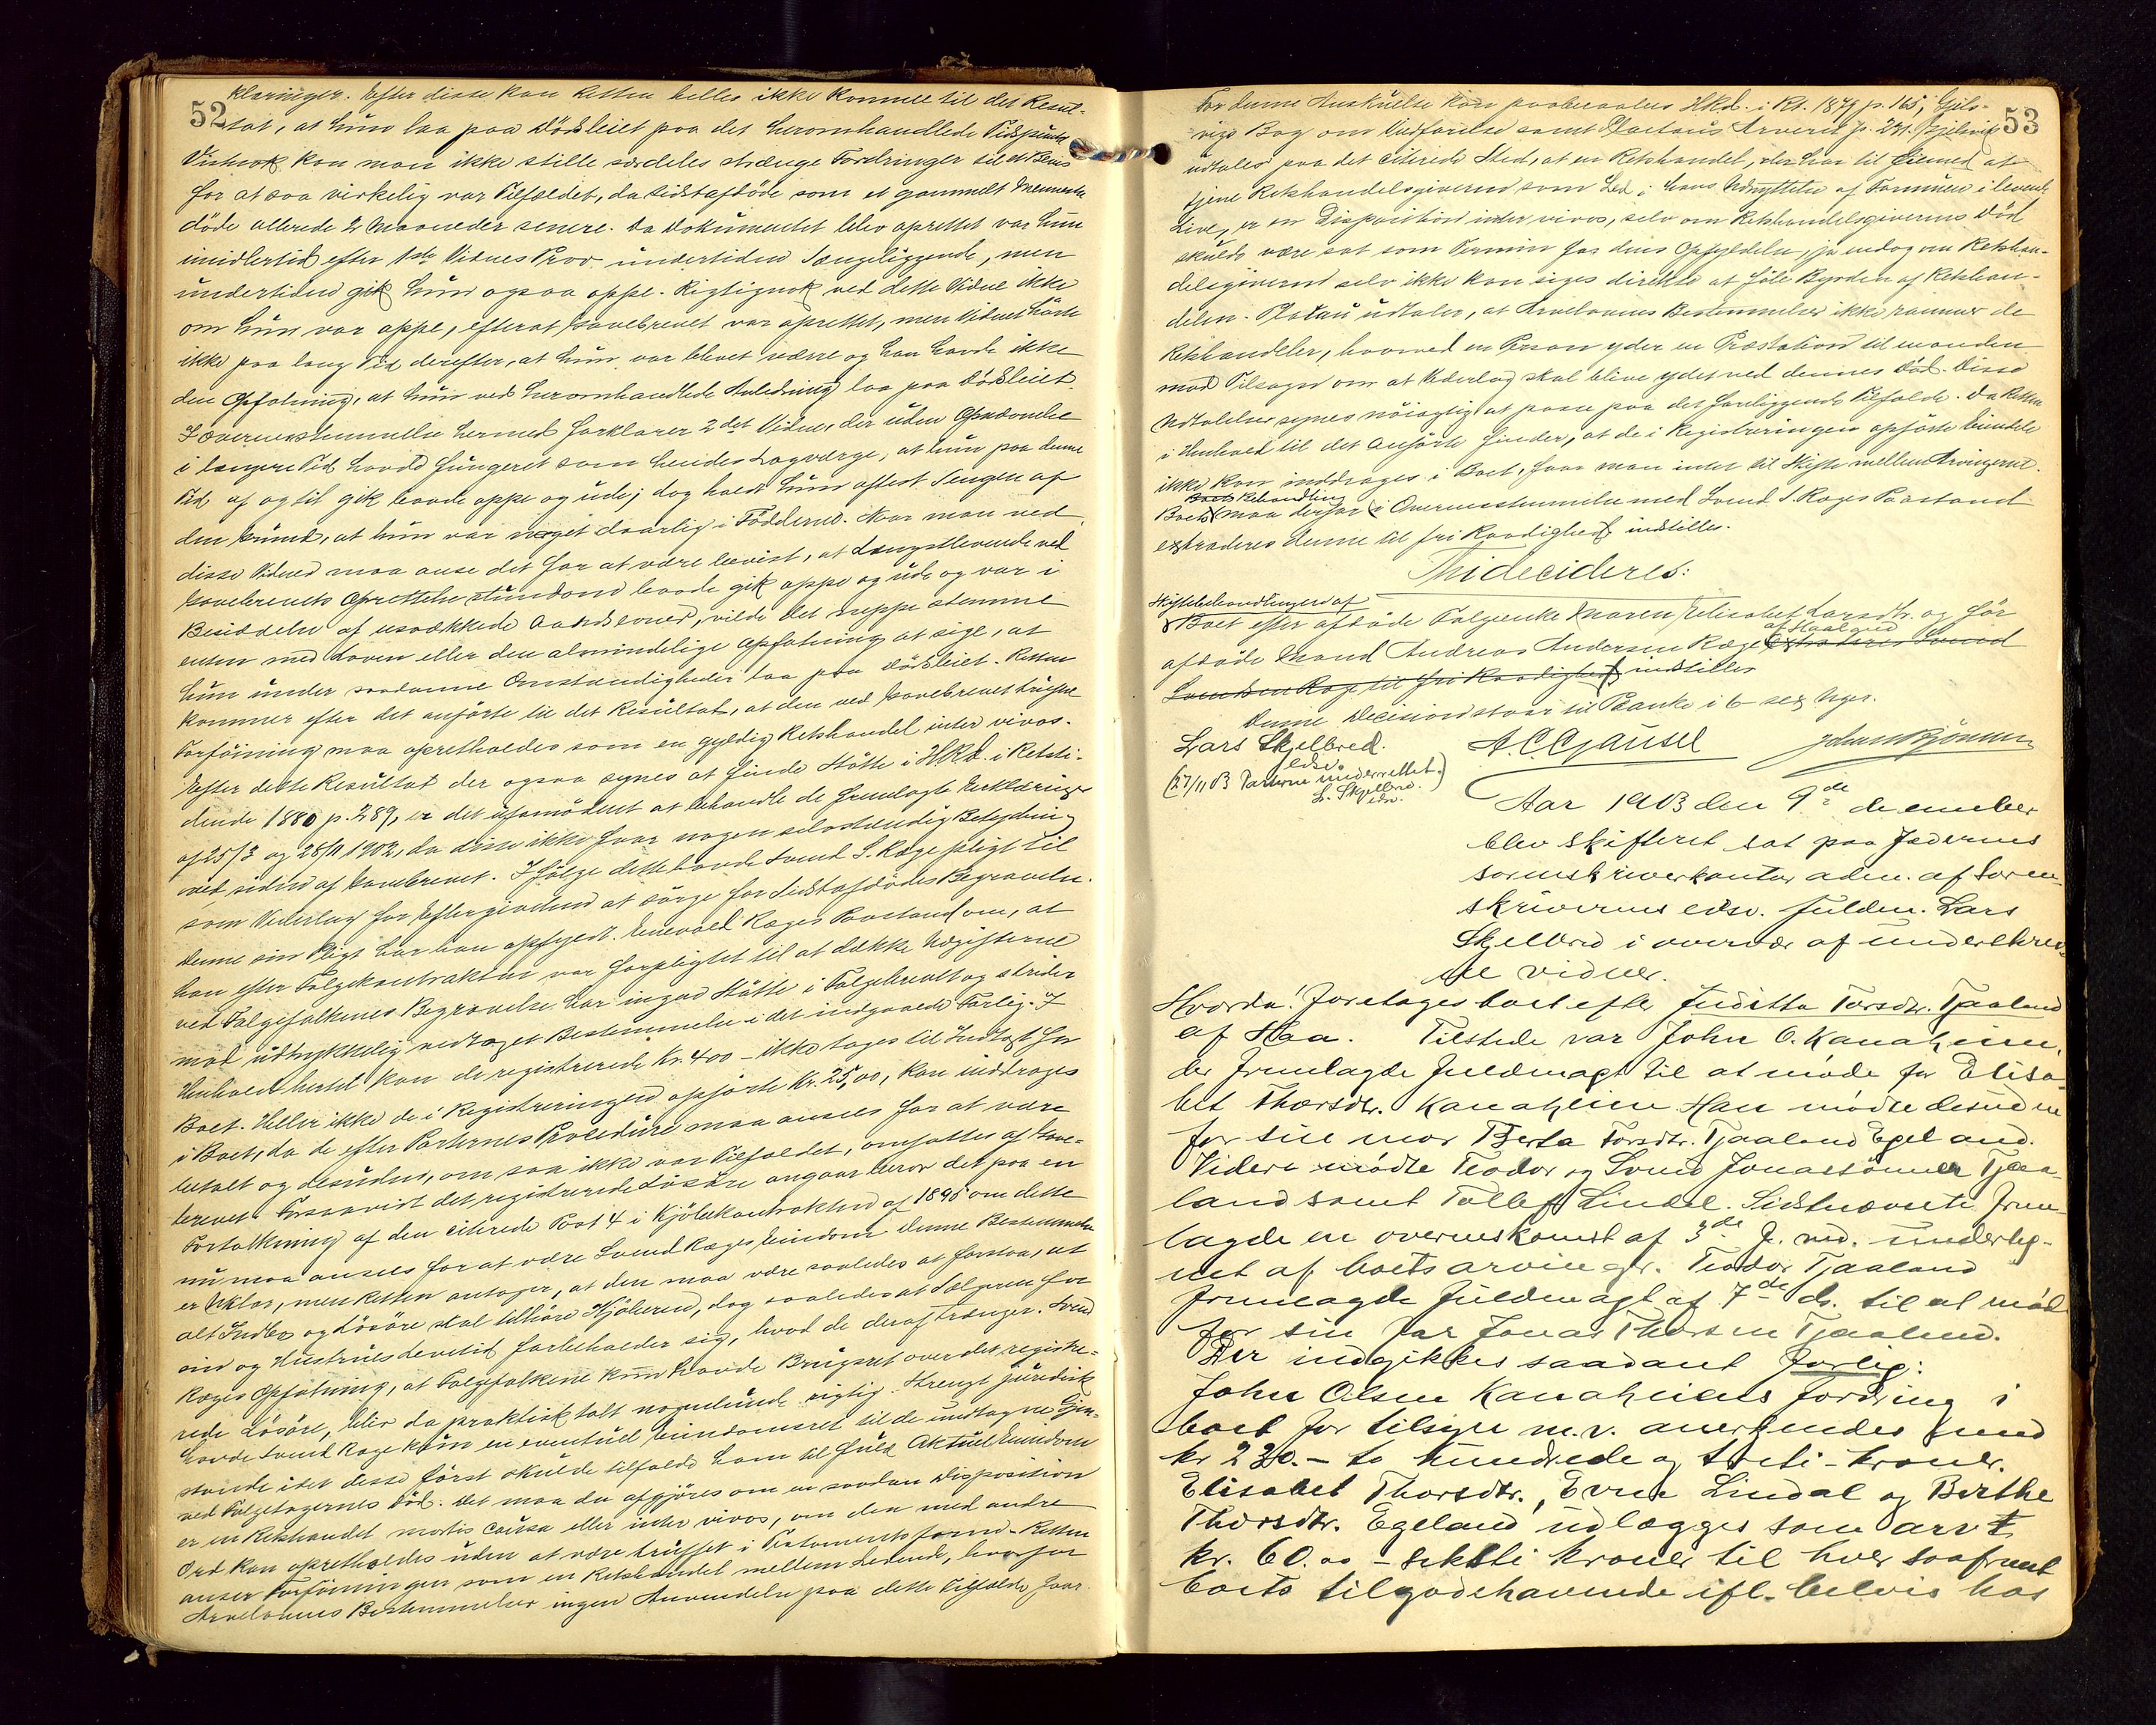 52
klaringer. Efter disse kan Retten heller ikke komme til det Resul-
tat, at hun laa paa Dödsleiet paa det heromhandlede Tidspunkt.
Vistnok kan man ikke stille særdeles strænge Fordringer til et Bevis
for at saa virkelig var Tilfældet, da sidstafdöde som et gammelt Menneske
döde allerede 2 Maaneder senere. Da Dokumentet blev oprettet var hun
imidlertid efter 1ste Vidnes Prov undertiden Sengeliggende, men
undertiden gik hun ogsaa oppe. Rigtignok ved dette Vidne ikke
om hun var oppe, efterat Gavebrevet var oprettet, men Vidnet hörte
ikke paa lang Tid derefter, at hun var blevet værre og han havde ikke
den Opfatning, at hun ved heromhandlede Anledning laa paa Dödsleiet.
I Overensstemmelse hermed forklarer 2det Vidne, der uden Opnævnelse
i længere Tid havde fungeret som hendes Lagværge, at hun paa denne
Tid af og til gik baade oppe og ude; dog holdt hun oftest Sengen af
den Grund, at hun var meget daarlig i Födderne. Naar man ved
disse Vidner maa anse det for at være bevist, at Længstlevende ved
Gavebrevets Oprettelse stundom baade gik oppe og ude og var i
Besiddelse af usvækkede Aandsevner, vilde det neppe stemme
enten med Loven eller den almindelige Opfatning at sige, at
hun under saadanne Omstændigheder laa paa Dödsleiet. Retten
kommer efter det anförte til det Resultat, at den ved Gavebrevet trufne
Forföining maa opretholdes som en gyldig Retshandel inter vivos.
Efter dette Resultat der ogsaa synes at finde Stötte i HRd. i Retsti-
dende 1880 p. 289, er det ufornödent at behandle de fremlagte Erklæringer
af 25/3 og 28/11 1902, da disse ikke faar nogen selvstændig Betydning
ved siden af Gavebrevet. I fölge dette havde Svend S. Ræge pligt til
som Vederlag for Eftergivelsen at sörge for Sidstafdödes Begravelse.
Denne sin Pligt har han opfyldt. Enevald Ræges Paastand om, at
han efter Folgekontrakten var forpligtet til at dække Udgifterne
ved Folgefolkenes Begravelse har ingen Stötte i Folgebrevet og strider
mod udtrykkelig vedtaget Bestemmelse i det indgaaede Forlig. I
Henhold hertil kan de registrerede Kr. 400 - ikke tages til Indtægt for
Boet. Heller ikke de i Registreringen opförte Kr. 25,00, kan inddrages
i Boet, da de efter Parternes Procedure maa ansees for at være
betalt og desuden, om saa ikke var Tilfældet, omfattes af Gave-
brevet. Forsaavidt det registrerede Lösöre angaar beror det paa en
Fortolkning af den citerede Post 4 i Kjöbekontrakten af 1895 om dette
nu maa ansees for at være Svend Ræges Eiendom. Denne Bestemmelse
er uklar, men Retten antager, at den maa være saaledes at forstaa, at
alt Indbo og Lösöre skal tilhöre Kjöberen, dog saaledes at Sælgeren for
sin og Hustrues Levetid forbeholder sig, hvad de deraf trænger. Svend
Ræges Opfatning, at Folgefolkene kun havde Brugsret over det registre-
rede Lösöre, bliver da praktisk talt nogenlunde rigtig. Strengt juridisk
havde Svend Ræge kun en eventuel Eiendomsret til de undtagne Gjen-
stande idet disse först skulde tilfalde ham til fuld Aktuel Eiendom
ved Folgetagernes Död. Det maa da afgjöres om en saadan Disposition
er en Retshandel mortis causa eller inter vivos, om den med andre
Ord kan opretholdes uden at være truffet i Testaments form. Retten
anser Forföiningen som en Retshandel mellem Levende, hvorfor
Arvelovens Bestemmelser ingen Anvendelse paa dette Tilfælde faar.
53
For denne Anskuelse kan paaberaabes HRd. i Rt. 1879 p. 165, Gjels-
viks Bog om Vildfarelse samt Platous Arveret p. 241. Gjelsvik
udtaler paa det citerede Sted, at en Retshandel, der har til Öiemed at
tjene Retshandelsgiveren som Led i hans Udnyttelse af Formuen i levende
Live, er en Disposition inter vivos, selv om Retshandelsgiverens Död
skulde være sat som Termin for dens Opfyldelse, ja endog om Retshan-
delsgiveren selv ikke kan siges direkte at föle Byrden af Retshan-
delen. Platou udtaler, at Arvelovens Bestemmelser ikke rammer de
Retshandeler, hvorved en Person yder en Præstation til en anden
mod Tilsagn om at Vederlag skal blive ydet ved dennes Död. Disse
Udtalelser synes nöiagtig at passe paa det foreliggende Tilfælde. Da Retten
i Henhold til det Anförte finder, at de i Registreringen opförte Eiendele
ikke kan inddrages i Boet, faar man intet til Skifte mellem Arvingerne.
Boets Behandling
Boet maa derfor i Overensstemmelse med Svend S. Ræges Paastand
extraderes denne til fri Raadighed indstilles.
Thi decideres:
Skiftebehandlingen af
Boet efter afdöde Folgeenke Maren Elisabet Larsdtr. og för
af Haaland
afdöde Mand Andreas Andersen Ræge extraderes Svend
Svendsen Ræge til fri Raadighed indstilles
Denne Decision staar til Paanke i 6 - sex Uger.
Lars Skjelbred.
edsv.
A. C. Gausel
Johan Bjönnes
(27/11 03 Parterne underrettet.)
L. Skjelbred.
edsv.
Aar 1903 den 9de december
blev skifteret sat paa Jæderens
sorenskriverkontor adm. af Soren-
skriverens edsv. fuldm. Lars
Skjelbred i overvær af underskrev-
ne vidner.
Hvorda! Foretages boet efter Juditta Torsdtr. Tjaaland
af Haa. Tilstede var John O. Kanaheim,
der fremlagde fuldmagt til at möde for Elisa-
bet Thorsdtr. Kanaheim. Han mödte desuden
for sin mor Berta Torsdtr. Tjaaland Egeland.
Videre mödte Teodor og Svend Jonassönner Tjaa-
land samt Tollef Lindal. Sidstnævnte frem-
lagde en overenskomst af 3de f. md. underteg-
net af boets arvinger. Teodor Tjaaland
fremlagde fuldmagt af 7de ds. til at möde
for sin far Jonas Thorsen Tjaaland.
Der indgikkes saadant forlig:
John Olsen Kanaheims fordring i
boet for tilsyn m.v. anerkjendes med
kr 230.- to hundrede og treti - kroner.
Elisabet Thorsdtr., Evne Lindal og Berthe
Thorsdtr. Egeland udlægges som arv
kr. 60.00 - seksti kroner til hver saafremt
boets tilgodehavende ifl. bevis hos